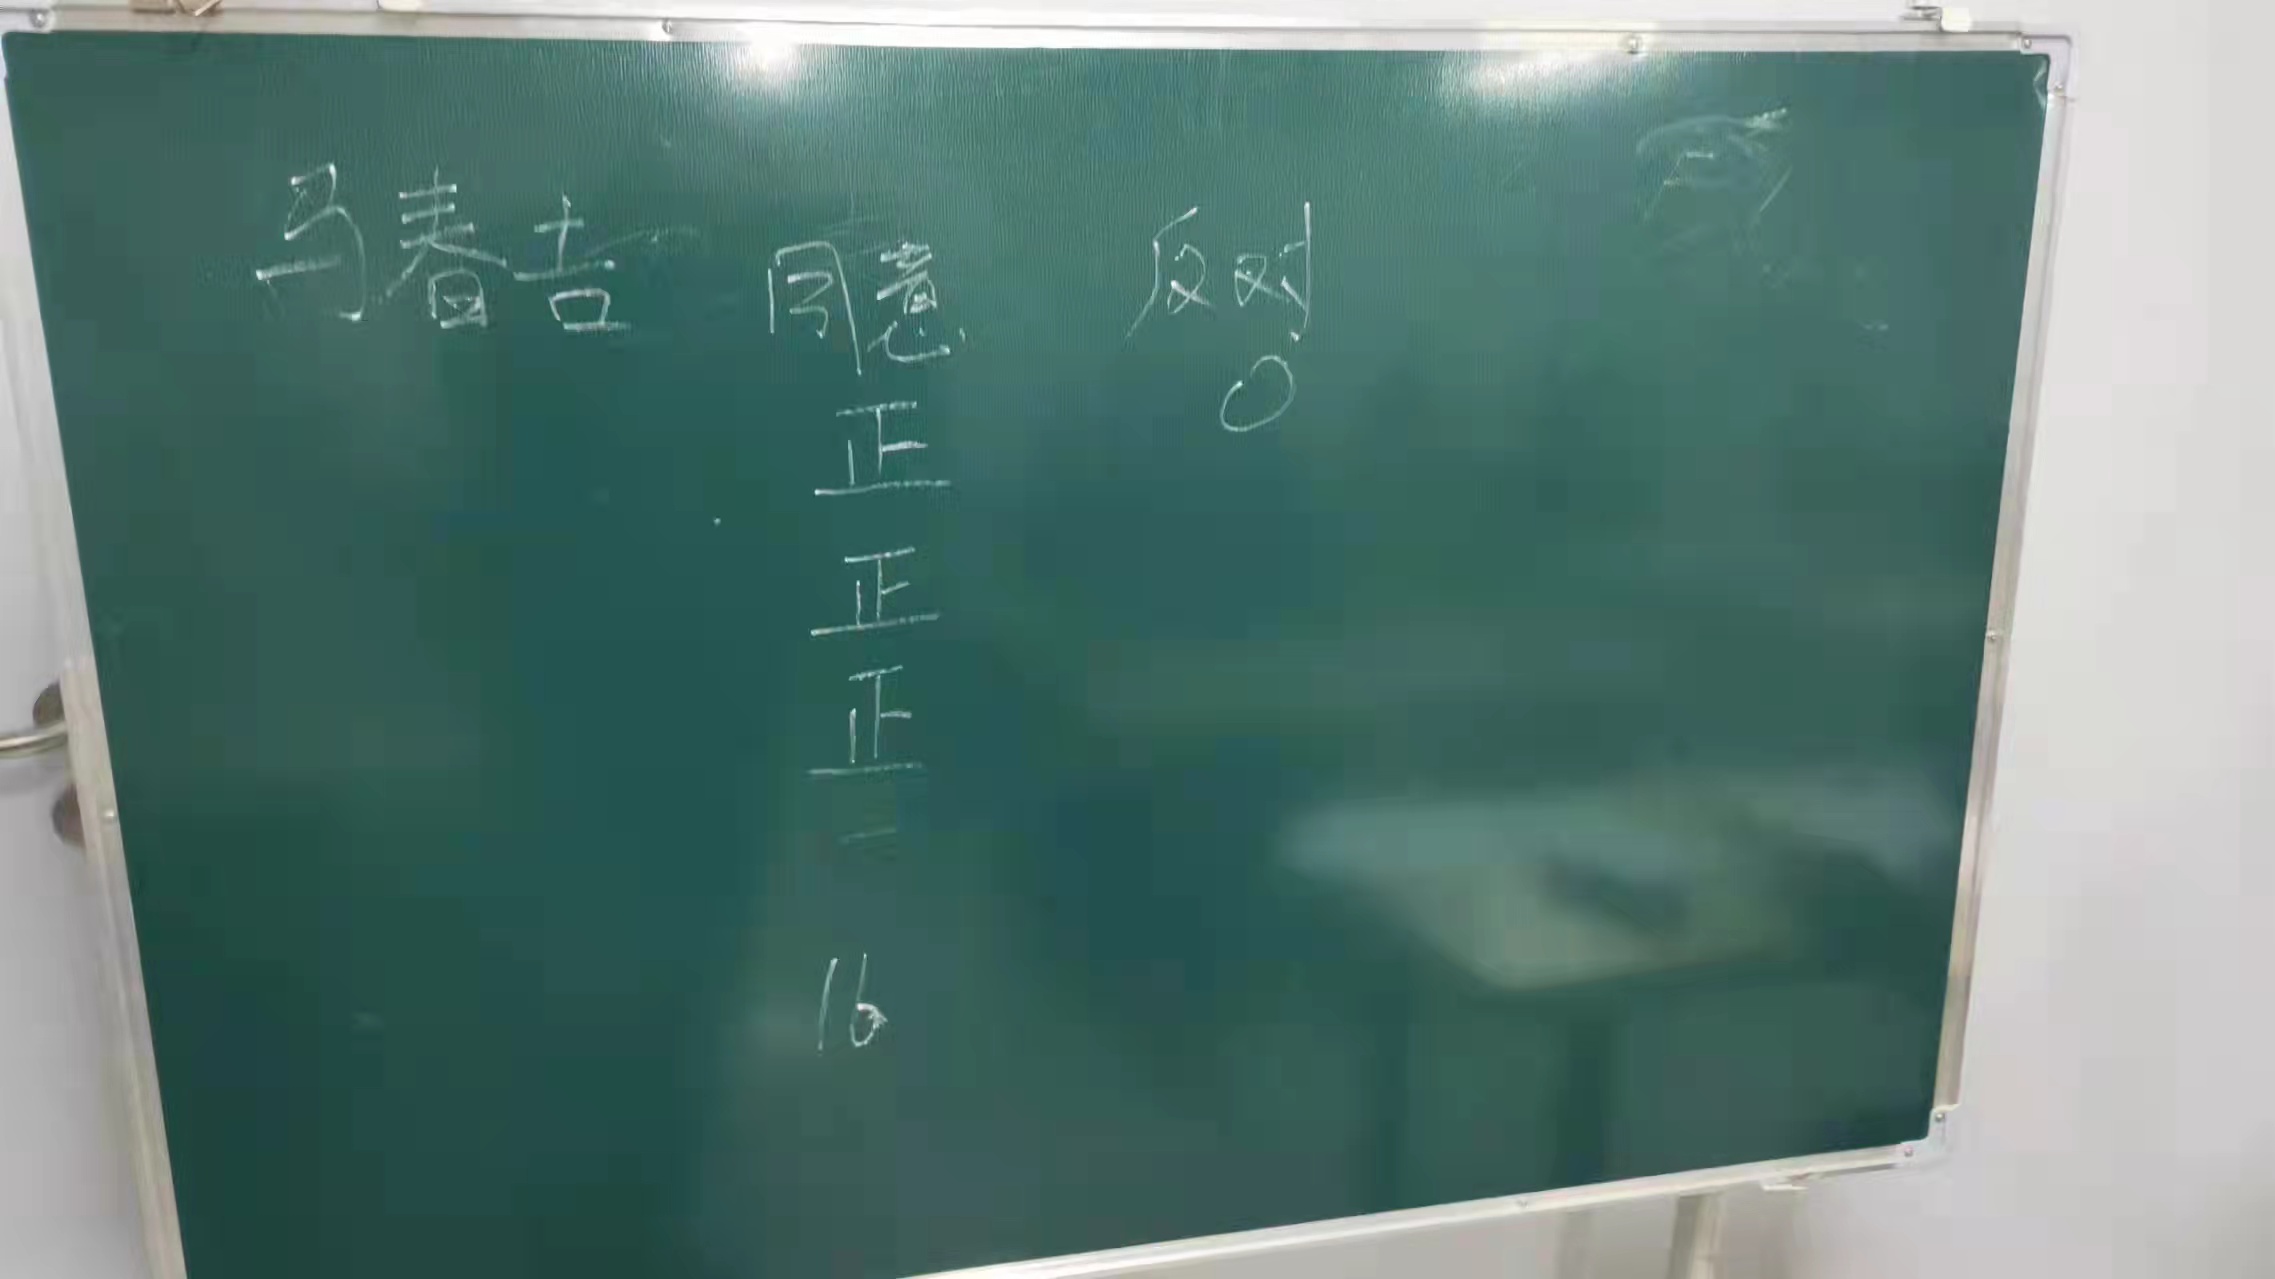 马春吉 同意 反对
0
正
正
正
一
16